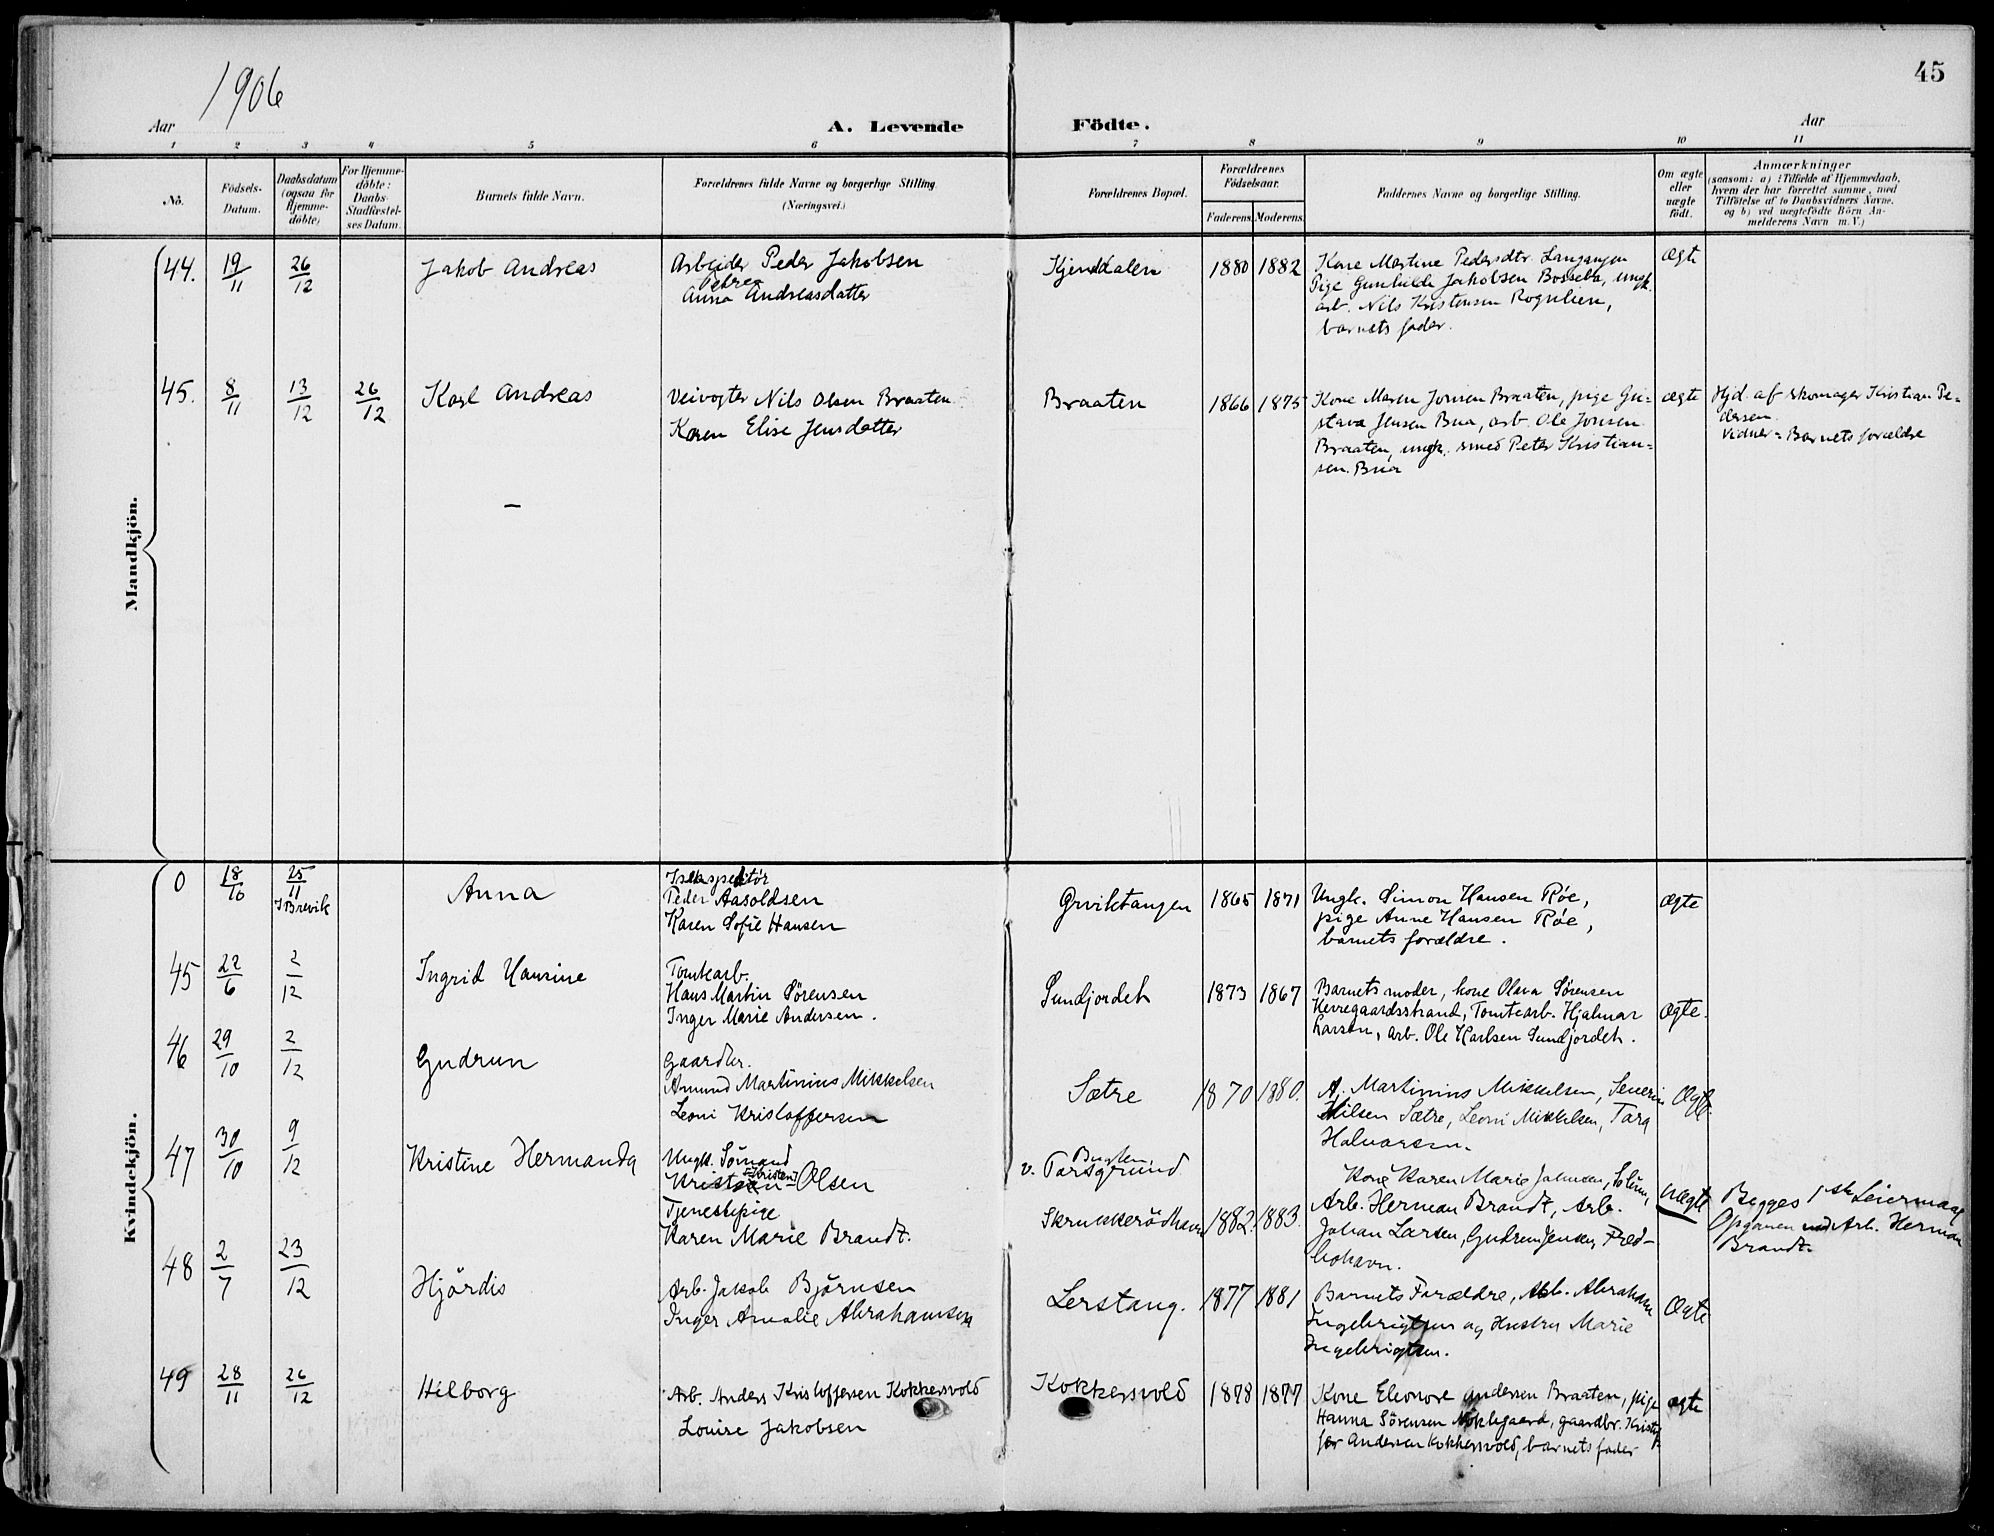 45
1906
Aar
A. Levende Födte.
Aar
1 2 3 4 5 6 7 8 9 10 11
No.
Födsels-
Datum.
Daabsdatum
(ogsaa för
Hjemme-
döbte)
For Hjemme-
döbte:
Daabs-
Stadfæstel-
ses Datum.
Barnets fulde Navn.
Forældrenes fulde Navne og borgerlige Stilling
(Næringsvei.)
Forældrenes Bopæl.
Forældrenes
Födselsaar.
Faderens. Moderens.
Faddernes Navne og borgerlige Stilling.
Om ægte
eller
uægte
födt.
Anmærkninger
(saasom: a) i Tilfælde af Hjemmedaab,
hvem der har forrettet samme, med
Tilföielse af to Daabsvidners Navne.
og b) ved uægtefödte Börn An-
melderens Navn m.V.)
Mandkjön.
44.
19/11
26/12
Jakob Andreas
Arbeider Peder Jakobsen
Petrea
Anna Andreasdatter
Kjendalen
1880 1882
Kone Martine Pedersdtr. Langangen
Pige Gunhilde Jakobsen Bosseba, ungk.
arb. Nils Kristensen Rognlien,
barnets fader.
ægte
45.
8/11
13/12
26/12
Karl Andreas
Veivogter Nils Olsen Braaten
Karen Elise Jensdatter
Braaten
1866 1875
Kone Maren Jonsen Braaten, pige Gu-
stava Jensen Bua, arb. Ole Jonsen
Braaten, ungk. smed Peter Kristian-
sen. Bua
ægte
Hjd. af skomager Kristian Pe-
dersen.
Vidner = Barnets forældre
—
Kvindekjön.
0
18/10
25/11
I Brevik
Anna
Peder Aasoldsen
Karen Sofie Hansen
Grviktangen
1865 1871
Ungk. Simon Hansen Røe,
pige Anne Hansen Røe,
barnets forældre.
ægte
45
22/6
2/12
Ingrid Hansine
Tomtearb.
Hans Martin Sørensen
Inger Marie Andersen.
Sundjordet
1873 1867
Barnets moder, kone Olava Sørensen
Herregaardsstrand, Tomtearb. Hjalmar
Larsen, arb. Ole Karlsen Sundjordet.
Ægte.
46
29/10
2/12
Gudrun
Gaardbr.
Amund Martinius Mikkelsen
Leoni Kristoffersen
Sætre
1870 1880.
A. Martinius Mikkelsen, Severin
Nilsen Sætre, Leoni Mikkelsen, Tara
Halvorsen.
Ægte.
47
30/10
9/12
Kristine Hermanda
Ungk. Sømand
[Kristen]
Kristian Olsen
Tjenestepige
Karen Marie Brandt.
Bugten
v. Torsgrund
Skrukkerödhavn
1882. 1883.
Kone Karen Marie Johnsen, Solum,
Arb. Herman Brandt, Arb.
Johan Larsen, Gudrun Jensen, Fred-
bohavn.
uægte
Begges 1ste Leiermaal
Opgaven ved Arb. Herman
Brandt.
48
2/7
23/12
Hjördis
Arb. Jakob Björnsen
Inger Amalie Abrahamsen
Lerstang.
1877 1881
Barnets Forældre, Arb. Abraham
Ingebrigtsen og Hustru Marie
Ingebrigtsen.
Ægte
49
28/11
26/12
Hilborg
Arb. Anders Kristoffersen Kokkersvold
Louise Jakobsen
Kokkersvold
1878 1877
Kone Eleonore Andersen Braaten, pige
Hanna Sörensen Nöklegaard, gaardbr. Kristof-
fer Andersen Kokkersvold, barnets fader
ægte